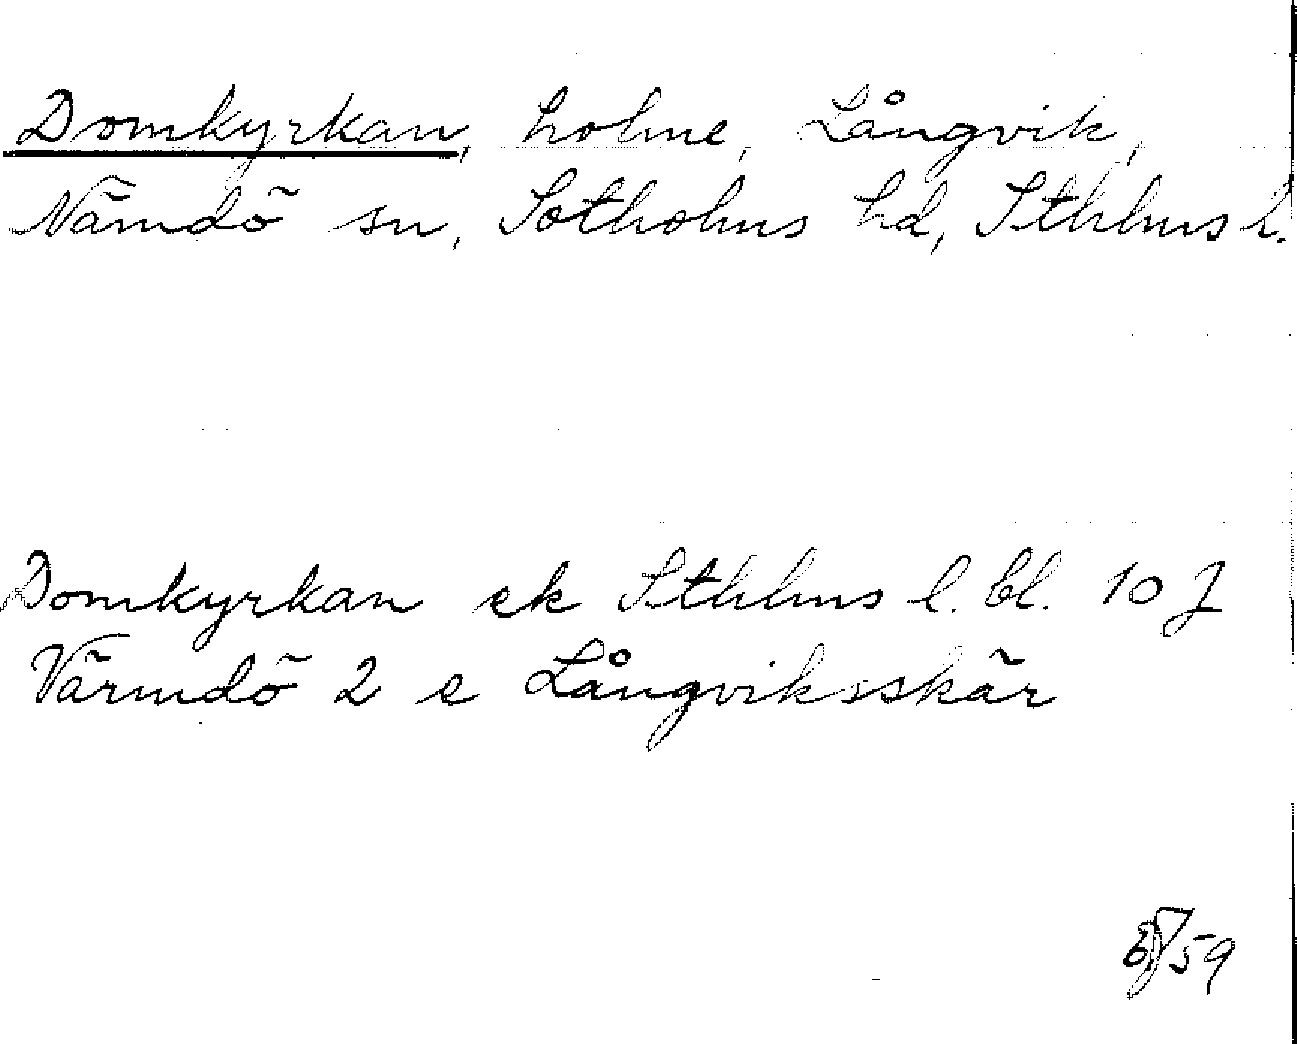 Domkyrkan, holme, Långvik,
Nämdö sn, Sotholms hd, Sthlms l.
Domkyrkan ek Sthlms l. bl. 10 J
Värmdö 2 e Långviksskär
59